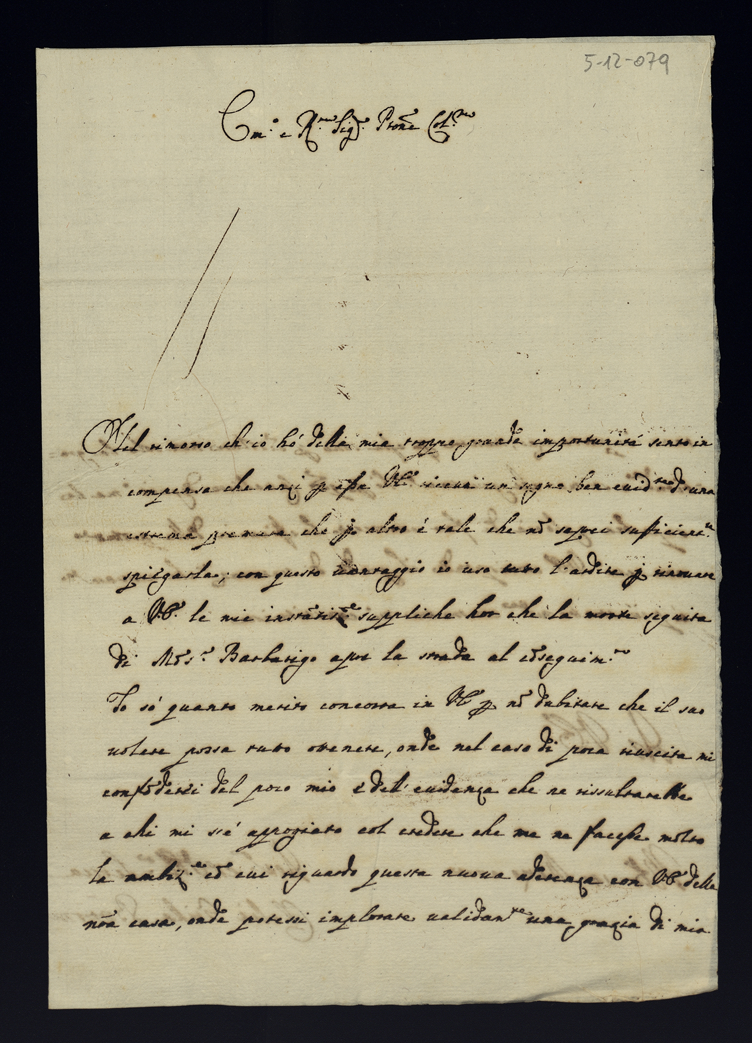 5-12-079
Em.º e R.mo Sig.r Prone Col.mo
Nel rimorso ch'io hó della mia troppo grande importunitá sento in
compenso che anzi p essa VE. riceva un segno ben evid.te d'una
estrema premura che p altro é tale che nō saprei sufficient.e
spiegarla; con questo vantaggio io uso tutto l'ardire p rinovare
a V.E. le mie suppliche hor che la morte seguita
di Mōs.r Barbarigo apre la strada al cōseguim.to
Io só quanto merito concorra in VE p nō dubitare che il suo
volere possa tutto ottenere, onde nel caso di poca riuscita mi
confōderei del poco mio é dell'evidenza che ne rissultarebbe
a chi mi s'é appogiato col credere che me ne facesse molto
la cō cui riguardo questa nuova aderenza con VE della
nrā casa, onde potessi implorare validam.te una grazia di mia